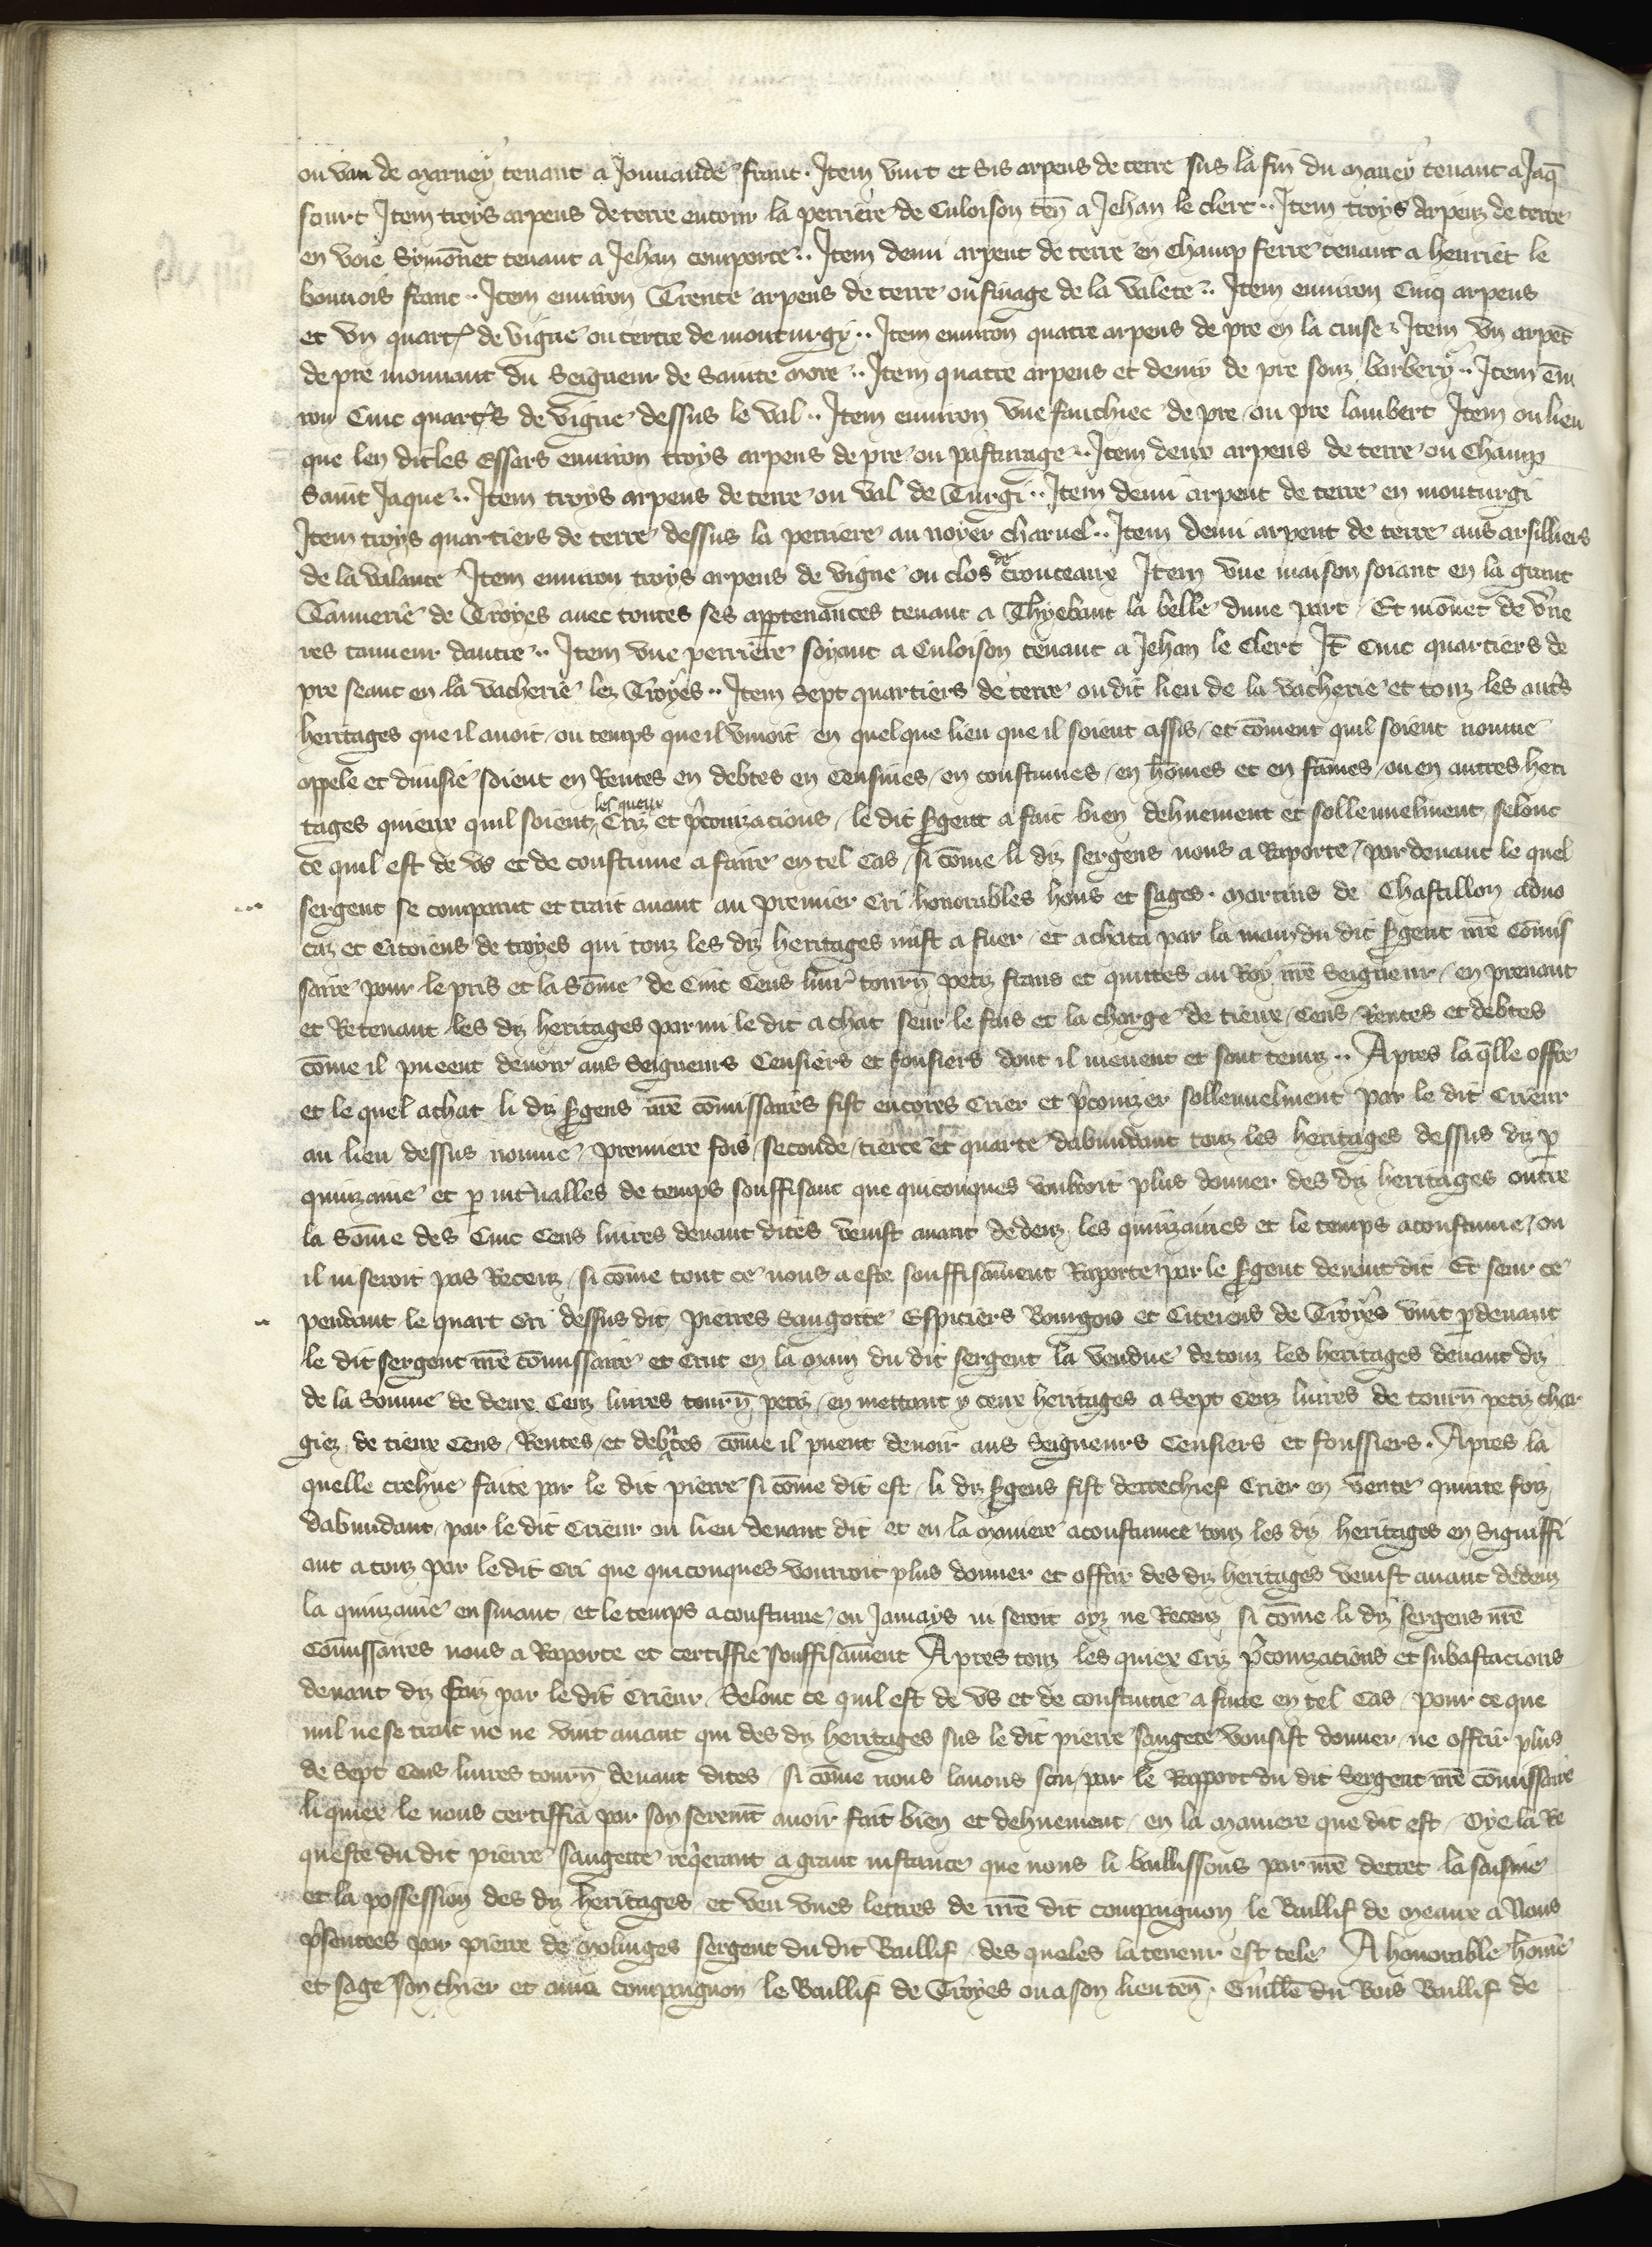 ou van de marney tenant a Jouuande franc. Item vint et sis arpens de terre sus la fin du maney tenant a Jaq̄
sourt Item troys arpens de terre entour la perriere de Culoison ten̄ a Jehan le clerc .. Item troys arpenz de terre
en voie Symōnet tenant a Jehan comporte .. Item demi arpent de terre en champ ferre tenant a henriet le
bouuois franc .. Item enuiron Trente arpens de terre ou finage de la valete .. Item enuiron Cinq arpens
et vn quart᷑ de vigne ou tertre de monturgy .. Item enuiron quatre arpens de pre en la cuise .. Item vn arpēt
de pre mouuant du Seigneur de Sainte more .. Item quatre arpens et demy de pre souz barbery .. Item ēui
ron Cinc quart᷑s de vigne dessus le val .. Item enuiron vne fauchiee de pre ou pre lambert Item ou lieu
que len dit les essars enuiron troys arpens de pre ou pasturage .. Item deux arpens de terre ou champ
Saint Jaque .. Item troys arpens de terre ou val de Turgi .. Item demi arpent de terre en monturgi
Item troys quartiers de terre dessus la perriere au noyer charuel .. Item demi arpent de terre aus arsilliers
de la valante Item enuiron troys arpens de vigne ou clos de crouceaux Item vne maison soiant en la grant
Tannerie de Troyes auec toutes ses apptenances tenant a Thyebaut la belle dune part Et mōnet de v᷑ne
res tanneur dautre .. Item vne perriere soyant a Culoison tenant a Jehan le Clerc It̄ Cinc quartiers de
pre seant en la vacherie lez Troyes .. Item Sept quartiers de terre ou dit lieu de la vacherie et touz les aut᷑s
heritages que il auoit ou temps que il viuoit en quelque lieu que il soient assis et cōment quil soient nomme
appele et diuisie soient en Rentes en debtes en Censiues en coustumes en hōmes et en fāmes ou en autres heri
tages quiexx quil soient les queux Criz et p᷑conizacions le dit s᷑gent a fait bien dehuement et sollennelment selonc
ce quil est de vs et de coustume a faire en tel Cas si cōme li diz sergens nous a Raporte par deuant le quel
sergent se comparut et trait auant au premier cri honorables hons et sages martins de Chastillon aduo
caz et Citoiens de troyes qui touz les diz heritages mist a fuer et achata par la main du dit s᷑gent nr̄e cōmis
saire pour le pris et la Sōme de Cinc Cens liur᷑ tourn̄ petiz frans et quittes au Roy nr̄e Seigneur en prenant
et Retenant les diz heritages parmi le dit achat seur le fais et la charge de tieux Cens Rentes et debtes
cōme il pueent deuoir aus Seigneurs Censiers et fonsiers dont il muevent et sont tenuz .. Apres la q̄lle offre
et le quel achat li diz s᷑gens nr̄e cōmissaires fist encores Crier et p᷑conizer sollennelment par le dit Crieur
au lieu dessus nomme premiere fois seconde tierce et quarte dabundant touz les heritages dessus diz p̱
quinzaine et p̱ int᷑ualles de temps souffisant que quiconques vouldroit plus donner des diz heritages outre
la Sōme des Cinc Cens liures deuant dites venist auant dedenz les quinzaines et le temps acoustume ou
il ni seroit pas Receuz si cōme tout ce nous a este souffisāment Raporte par le s᷑gent deuant dit Et seur ce
pendant le quart cri dessus dit Pierres Saugette Espiciers Bourgois et Citeiens de Troyes vint p̱deuant
le dit sergent nr̄e cōmissaire et crut en la main du dit sergent la vendue de touz les heritages deuant diz
de la Somme de deux Cenz liures tourn̄ petiz en mettant yceux heritages a Sept Cenz liures de tourn̄ petiz char
giez de tieux Cens Rentes et debtes cōme il pueent deuoir aus Seigneurs Censiers et fonssiers. Apres la
quelle crehue faite par le dit pierre si cōme dit est li diz s᷑gens fist derrechief Crier en vente quinte foiz
dabundant par le dit Crieur ou lieu deuant dit et en la maniere acoustumee touz les diz heritages en Signiffi
ant a touz par le dit cri que quiconques vourroit plus donner et offrir des diz heritages venist auant dedenz
la quinzaine ensiuant et le temps acoustume ou Jamays ni seroit oyz ne Receuz si cōme li diz sergens nr̄e
Cōmissaires nous a Raporte et certiffie souffisāment Apres touz les quiex Criz p᷑conizacions et subastacions
deuant diz faiz par le dit Crieur Selonc ce quil est de vs et de coustume a faire en tel Cas pour ce que
nul ne se trait ne ne vint auant qui des diz heritages sus le dit pierre saugete vousist donner ne offrir plus
de Sept Cens liures tourn̄ deuant dites si cōme nous lauons sceu par le Rapport du dit Sergent nr̄e cōmissaire
li quiex le nous certiffia par son serem̄t auoir fait bien et dehuement en la maniere que dit est Oye la Re
queste du dit pierre saugette req᷑rant a grant instance que nous li baillissons par nr̄e decret la saisine
et la possession des diz heritages et veu vnes lettres de nr̄e dit compaignon le Baillif de meaux a Nous
p᷑sentees par pierre de moluiges sergent du dit Baillif des queles la teneur est tele A honorable hōme
et sage son chier et amé compaignon le Baillif de Troyes ou a son lieuten̄. Guill̄e du Bois Baillif de